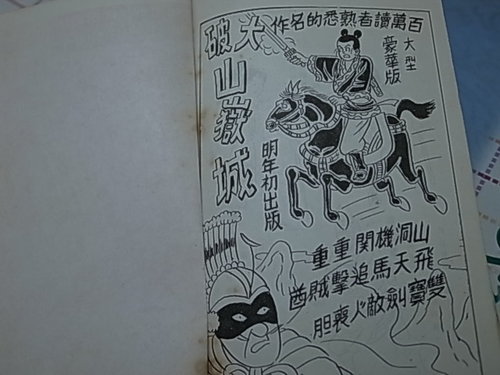 百萬讀者熟悉的名作
大型
豪華版
大破山嶽城
明年初出版
山洞機關重重
飛天馬追擊賊酋
雙寶劍敵人喪胆